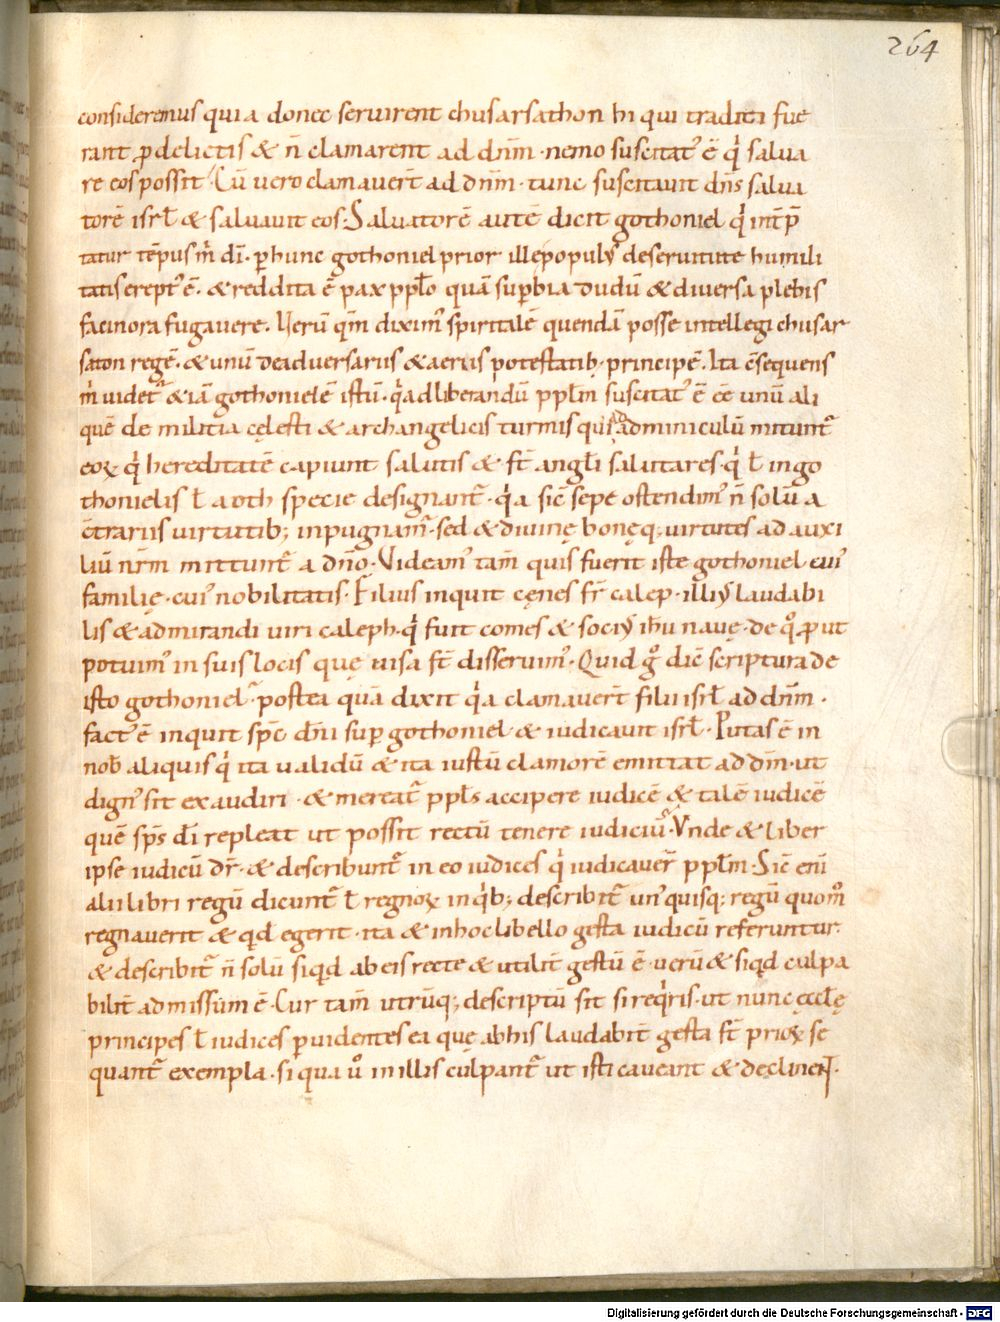 264
consideremus quia donec servirent chusarsathon hi qui traditi fue
rant ꝓ delictis & n̄ clamarent ad dn̄m · nemo suscitatꝰ ē qͥ salva
re eos possit Cū vero clamaver̄t ad dn̄m · tunc suscitavit dn̄s salva
torē isrł & salvavit eos · Salvatorē autē dicit gothoniel qͥ int̄p̄
tatur tēpus m̄ dī · ꝑ hunc gothoniel prior ille populꝰ de servitute humili
tatis ereptꝰ ē · & reddita ē pax ppło quā suꝑbia dudū & diversa plebis
facinora fugavere · Verū qm̄ diximꝰ spiritalē quendā posse intellegi chusar
saton regē · & unū de adversariis & aeriis potestatib; principē · Ita c̄sequens
m̄ videt᷑ & iā gothonielē istū · qͥ ad liberandū ppłm suscitatꝰ ē c̄e unū ali
quē de militia cęlesti & archangelicis turmis qui ad adminiculū mitunt᷑
eoꝝ qͥ hereditatē capiunt salutis & st̄ angłi salutares · qͥ ł in go
thonielis ł aoth specie designant᷑ · qͥa sic̄ sepe ostendimꝰ n̄ solū a
c̄trariis virtutib; inpugnam᷑ · sed & divinę bonęq; virtutes ad auxi
liū nr̄m mittunt᷑ a dn̄o · Videamꝰ tam̄ quis fuerit iste gothoniel cuiꝰ
familię · cuiꝰ nobilitatis · Filius inquit cęnes fr̄ calep · illiꝰ laudabi
lis & admirandi viri caleph · qͥ fuit comes & sociꝰ ihū navę · de qͦ ꝓut
potuimꝰ in suis locis quę visa st̄ disseruimꝰ · Quid gͦ dic̄ scriptura de
isto gothoniel · postea quā dixit qͥa clamaver̄t filii isrł ad dn̄m ·
factꝰ ē inquit sp̄c dn̄i suꝑ gothoniel · & iudicavit isrł · Putas ē in
nob̄ aliquis qͥ ita validū & ita iustū clamorē emittat ad dn̄m · ut
dignꝰ sit exaudiri · & mereat᷑ ppłs accipere iudicē & talē iudicē
quē sp̄s dī repleat ut possit rectū tenere iudiciū · Unde & liber
ipse iudicū dr̄ · & describunt᷑ in eo iudices qͥ iudicaver̄ ppłm · Sic̄ eni
alii libri regū dicunt᷑ ł regnoꝝ in qͥb; describit᷑ unꝰquisq; regū quomͦ
regnaverit & qͥd egerit · ita & in hoc libello gesta iudicū referuntur
& describit᷑ n̄ solū siqͥd ab eis recte & utilit̄ gestū ē · verū & siqͥd culpa
bilit̄ admissum ē · Cur tam̄ utrūq; descriptū sit si reqͥris · ut nunc ęcclę
principes ł iudices ꝑvidentes ea quę ab his laudabilit̄ gesta st̄ prioꝝ se
quant᷑ exempla · si qua ṽ in illis culpant᷑ ut isti caveant & declinent ·
Digitalisierung gefördert durch die Deutsche Forschungsgemeinschaft - DFG